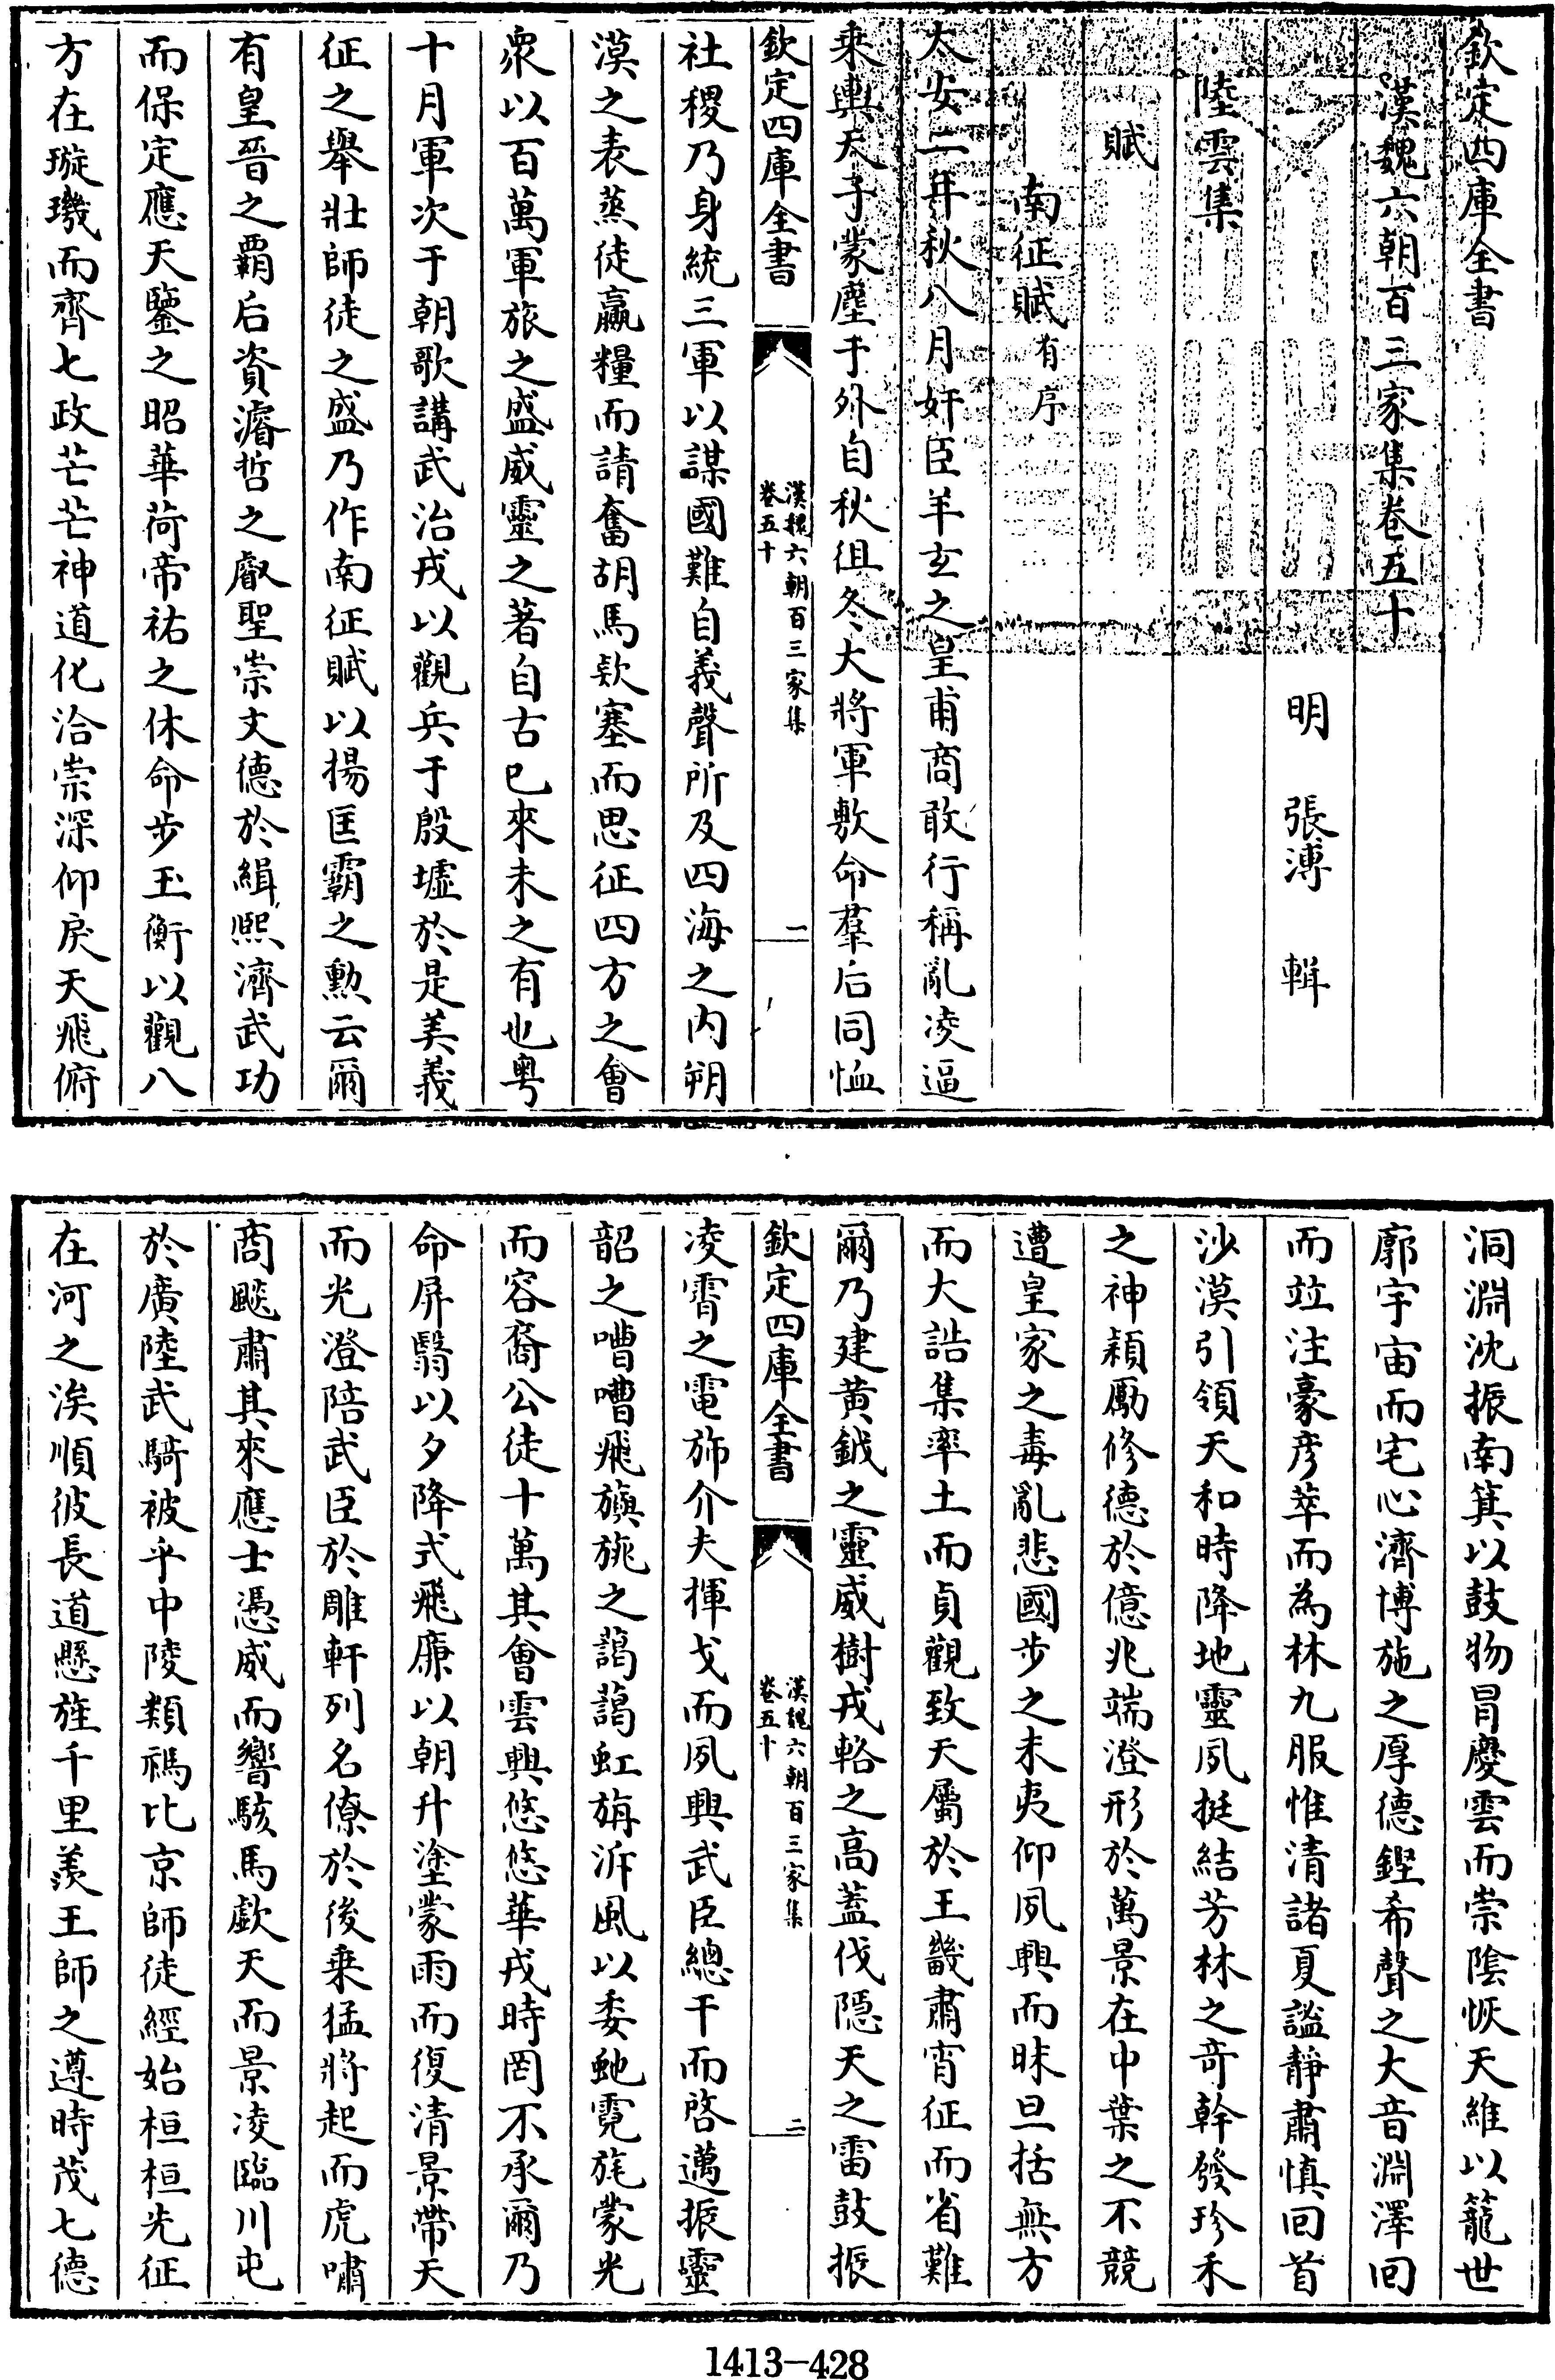 欽定四庫全書
漢魏六朝百三家集卷五十
明 張溥 輯
陸雲集
賦
南征賦有序
太安二年秋八月奸臣羊玄之皇甫商敢行稱亂凌逼
乘輿天子蒙塵于外自秋徂冬大將軍敷命羣后同恤
欽定四庫全書
漢魏六朝百三家集
卷五十
一
社稷乃身統三軍以謀國難自義聲所及四海之内朔
漠之表蒸徒贏糧而請奮胡馬欵塞而思征四方之會
衆以百萬軍旅之盛威靈之著自古已來未之有也粤
十月軍次于朝歌講武治戎以觀兵于殷墟於是美義
征之舉壯師徒之盛乃作南征賦以揚匡霸之勲云爾
有皇晉之覇后資濬哲之叡聖崇文德於緝熙濟武功
而保定應天鑒之昭華荷帝祐之休命步玉衡以觀八
方在璇璣而齊七政芒芒神道化洽崇深仰戾天飛俯
洞淵沈振南箕以鼓物冒慶雲而崇隂恢天維以籠世
廓宇宙而宅心濟博施之厚德鏗希聲之大音淵澤回
而竝注豪彦萃而為林九服惟清諸夏謐靜肅慎回首
沙漠引領天和時降地靈夙挺結芳林之奇幹發珍禾
之神穎勵修德於億兆端澄形於萬景在中葉之不競
遭皇家之毒亂悲國步之未夷仰夙興而昧旦括無方
而大誥集率土而貞觀致天屬於王畿肅宵征而省難
爾乃建黄鉞之靈威樹戎輅之高蓋伐隠天之雷鼓振
欽定四庫全書
漢魏六朝百三家集
卷五十
二
凌霄之電斾介夫揮戈而夙興武臣總干而啓邁振靈
韶之嘈嘈飛旟旐之藹藹虹旃泝風以委虵霓旄蒙光
而容裔公徒十萬其會雲興悠悠華戎時罔不承爾乃
命屏翳以夕降式飛廉以朝升塗蒙雨而復清景帶天
而光澄陪武臣於雕軒列名僚於後乘猛將起而虎嘯
商飇肅其來應士憑威而響駭馬歔天而景凌臨川屯
於廣陸武騎被乎中陵類禡比京師徒經始桓桓先征
在河之涘順彼長道懸旌千里羨王師之遵時茂七德
1413-428